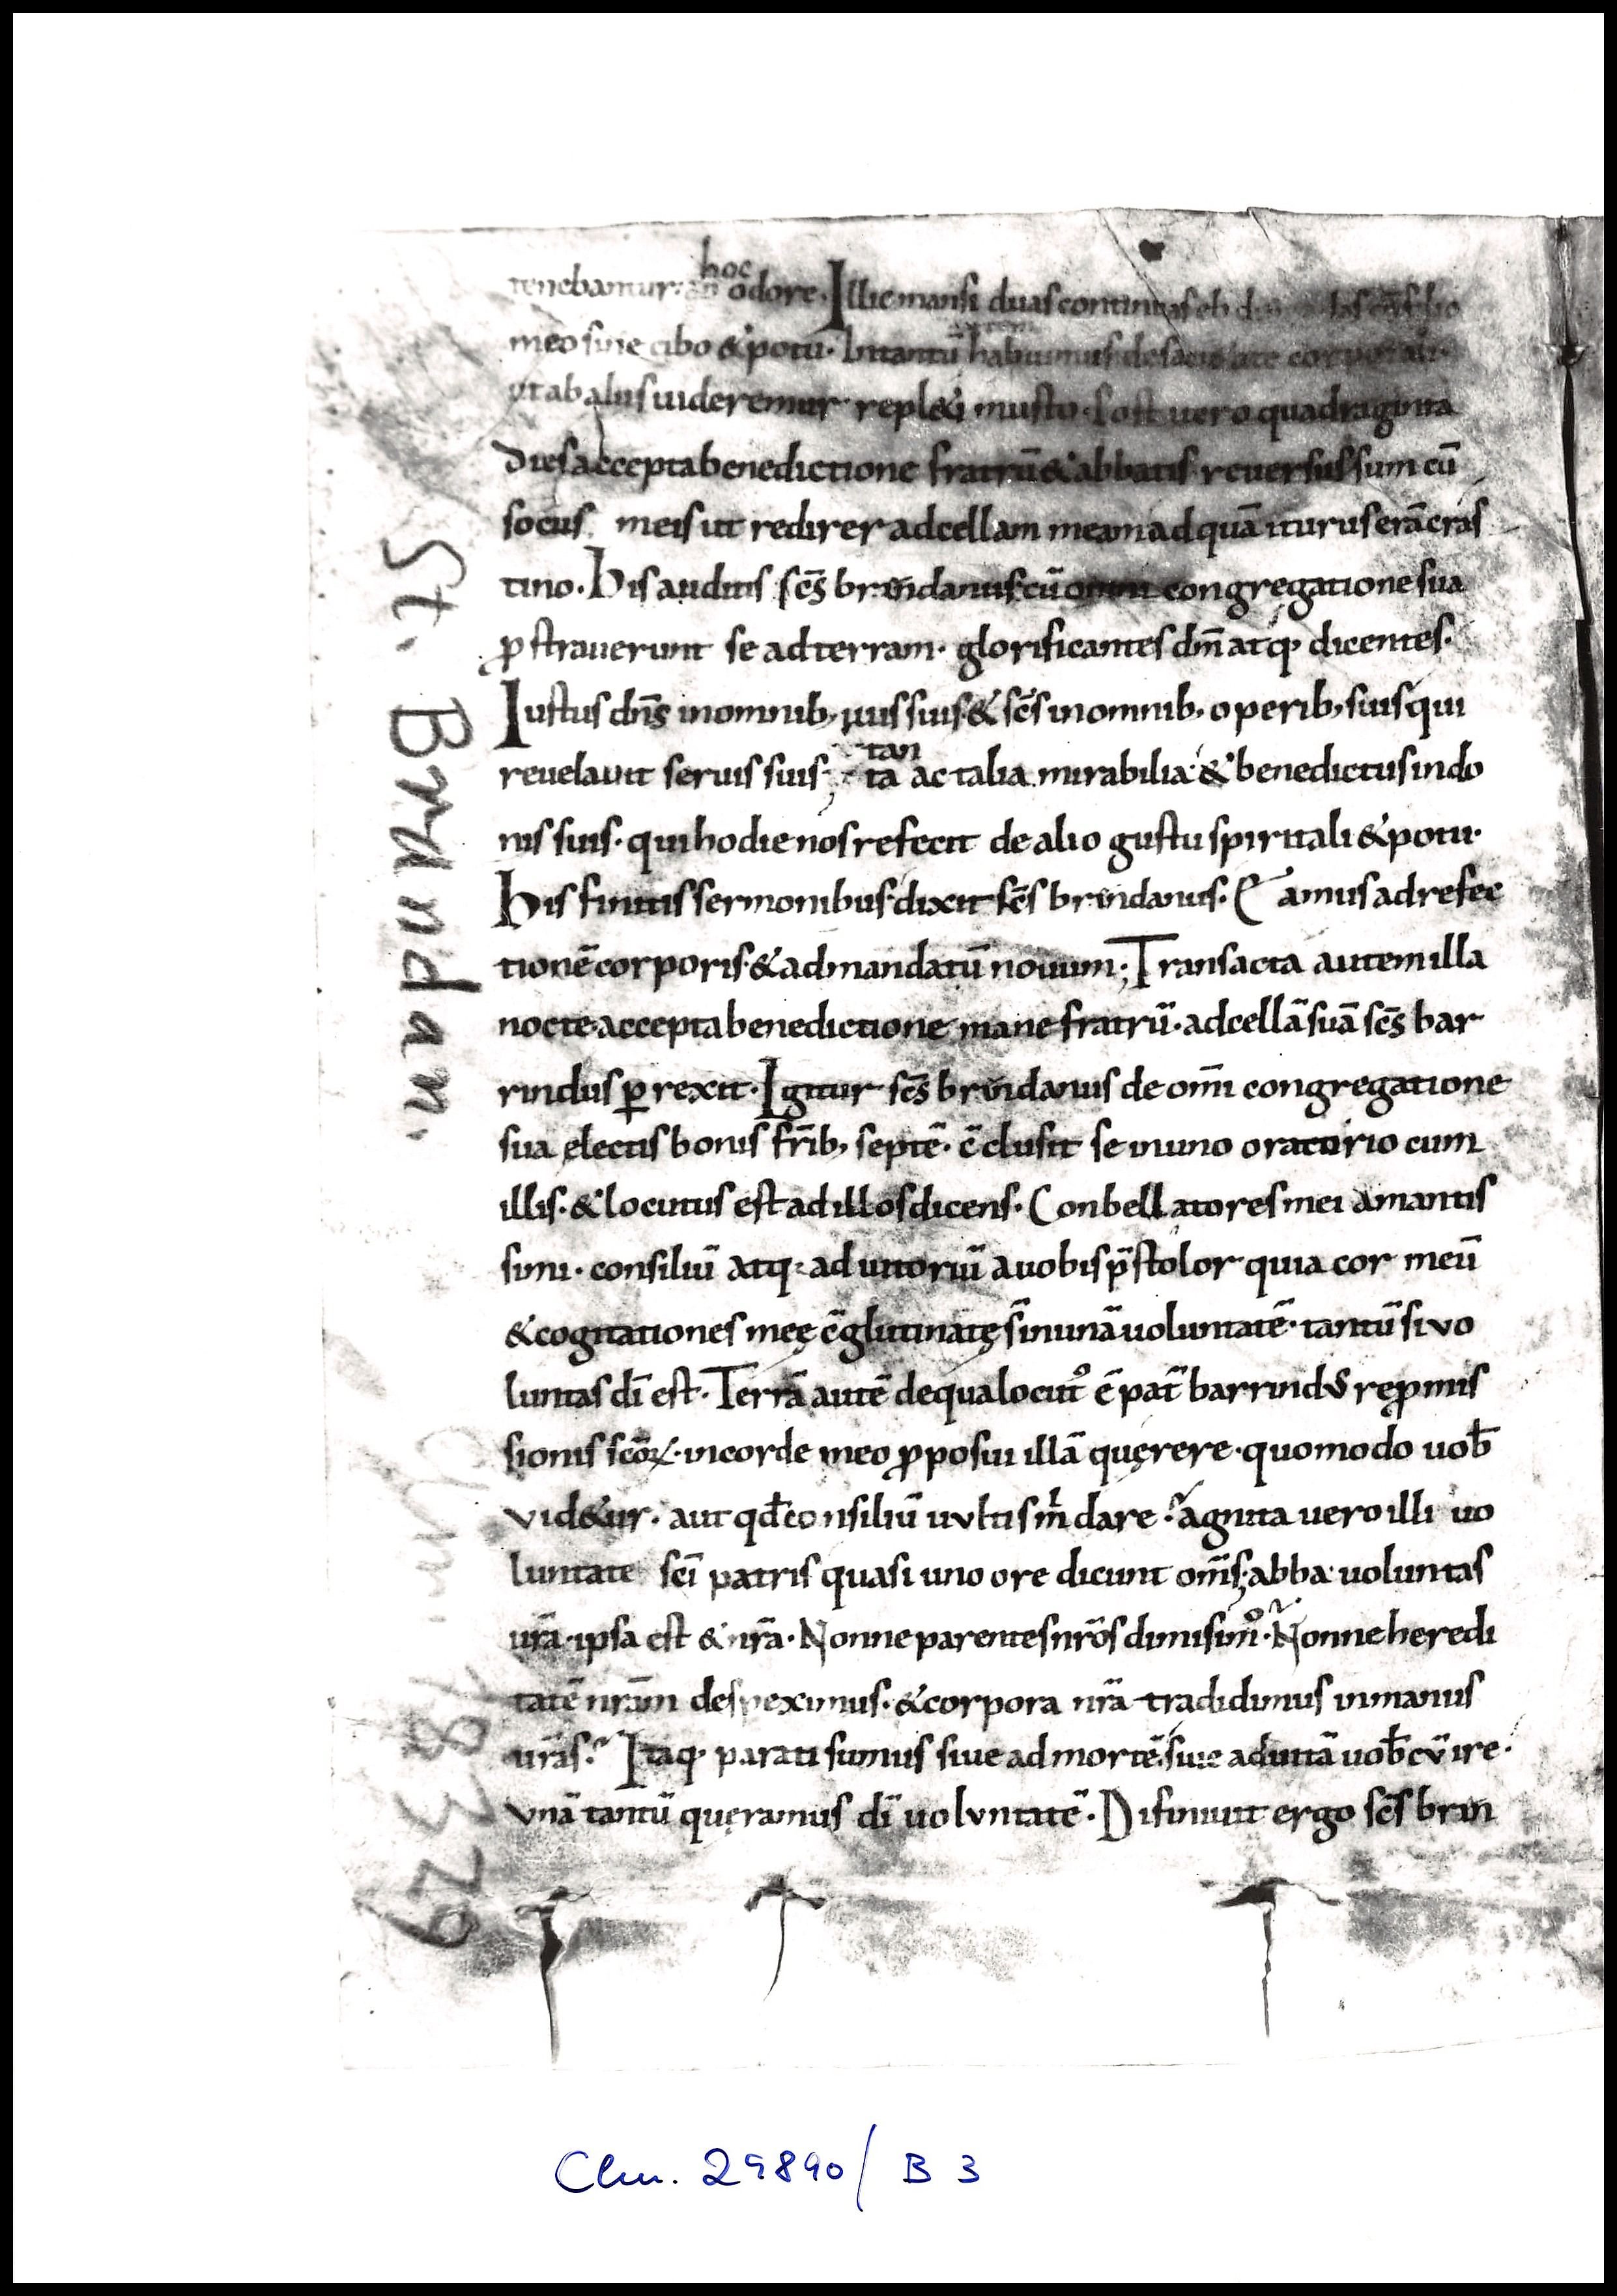 hoc
tenebamur: odore. Illic mansi duas continuas eb
meo sine cibo & potu. Intantū habuimus de sacietate corporali.
vt ab aliis uideremur repl&i musto. Post uero quadraginta
dies accepta benedictione fratrū & abbatis reuersus sum cū
sociis meis ut redirer ad cellam meam ad quā iturus erā cras
tino. His auditis sc̄s brandanus cū omni congregatione sua
ꝓstrauerunt se ad terram. glorificantes dm̄ atq; dicentes.
Iustus dn̄s in omnib; uiis suis. & sc̄s in omnib; operib; suis qui
tan
reuelauit seruis suis ta ac talia mirabilia. & benedictus in do
nis suis. qui hodie nos refecit de alio gustu spiritali & potu.
His finitis sermonibus dixit sc̄s brindanus. Eamus ad refec
tionē corporis. & ad mandatū nouum. Transacta autem illa
nocte. accepta benedictione mane fratrū. ad cellā suā sc̄s bar
rindus ꝑrexit. Igitur sc̄s brindanus de om̄i congregatione
sua electis bonis fr̄ib; septē. c̄clusit se in uno oratorio cum
illis. & locutus est ad illos dicens. Conbellatores mei amantis
simi. consiliū atq; adiutoriū a uobis p̄stolor quia cor meū
& cogitationes meę c̄glutinatę s̄ in unā uoluntatē. tantū si vo
luntas dī est. Terrā autē de qua locut᷒ ē pat̄ barrind᷒ reꝓmis
sionis sc̄oꝝ. in corde meo ꝓposui illā quęrere. quomodo uob̄
vid&ur. aut qd̄ consiliū uvltis m̄ dare? agnita uero illi uo
luntate sc̄i patris quasi uno ore dicunt om̄s. abba uoluntas
ur̄a. ipsa est & nr̄a. Nonne parentes nr̄os dimisim᷒. Nonne heredi
tatē nrām despeximus. & corpora nr̄a tradidimus in manus
ur̄as? Itaq; parati sumus siue ad mortē. siue ad uitā uob̄cū ire.
vnā tantū quęramus dī uolvntatē. Difiniuit ergo sc̄s brin
St. Brandan.
Clm. 29890/ B 3